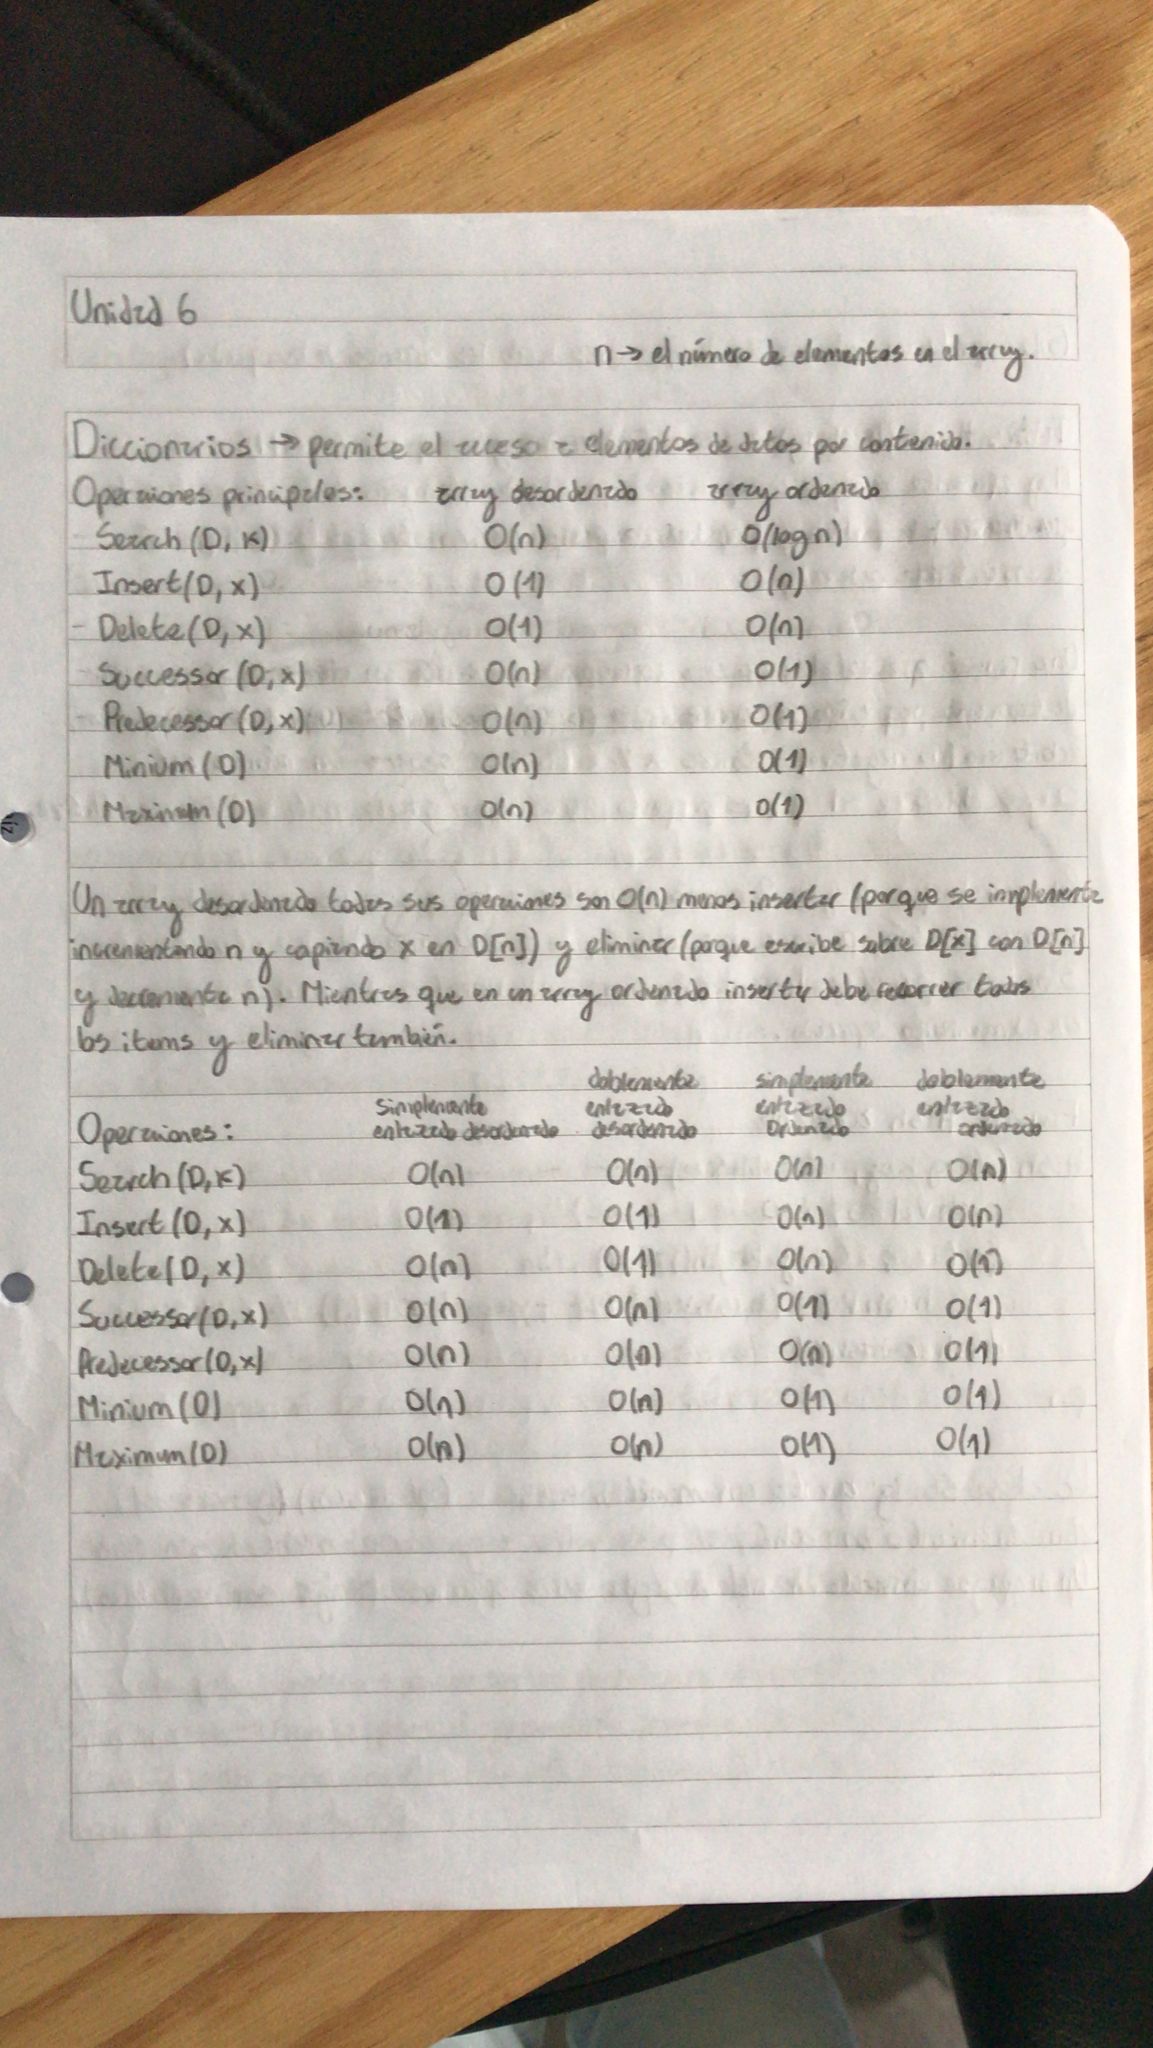 Unidad 6
n → el número de elementos en el array.
Diccionarios → permite el acceso a elementos de datos por contenido.
Operaciones principales: array desordenado array ordenado
Search (D, K) O(n) O(log n)
Insert (D, x) O(1) O(n)
Delete (D, x) O(1) O(n)
Successor (D, x) O(n) O(1)
Predecessor (D, x) O(n) O(1)
Minium (D) O(n) O(1)
Maximum (D) O(n) O(1)
Un array desordenado todas sus operaciones son O(n) menos insertar (porque se implementa
incrementando n y copiando x en D[n]) y eliminar (porque escribe sobre D[x] con D[n]
y decrementa n). Mientras que en un array ordenado insertar debe recorrer todos
los items y eliminar también.
doblemente simplemente doblemente
simplemente enlazado enlazado enlazado
Operaciones: enlazado desordenado desordenado Ordenado ordenado
Search (D, K) O(n) O(n) O(n) O(n)
Insert (D, x) O(1) O(1) O(n) O(n)
Delete (D, x) O(n) O(1) O(n) O(1)
Successor (D, x) O(n) O(n) O(1) O(1)
Predecessor (D, x) O(n) O(n) O(n) O(1)
Minium (D) O(n) O(n) O(1) O(1)
Maximum (D) O(n) O(n) O(1) O(1)